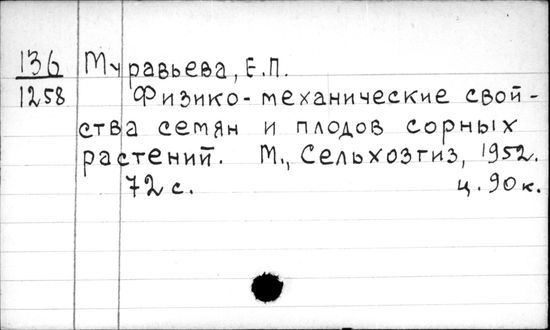 136 Муравьева, Е.П.
1258 Физико-механические свой-
ства семян и плодов сорных
растений. М., Сельхозгиз, 1952.
72 с. ц. 90 к.